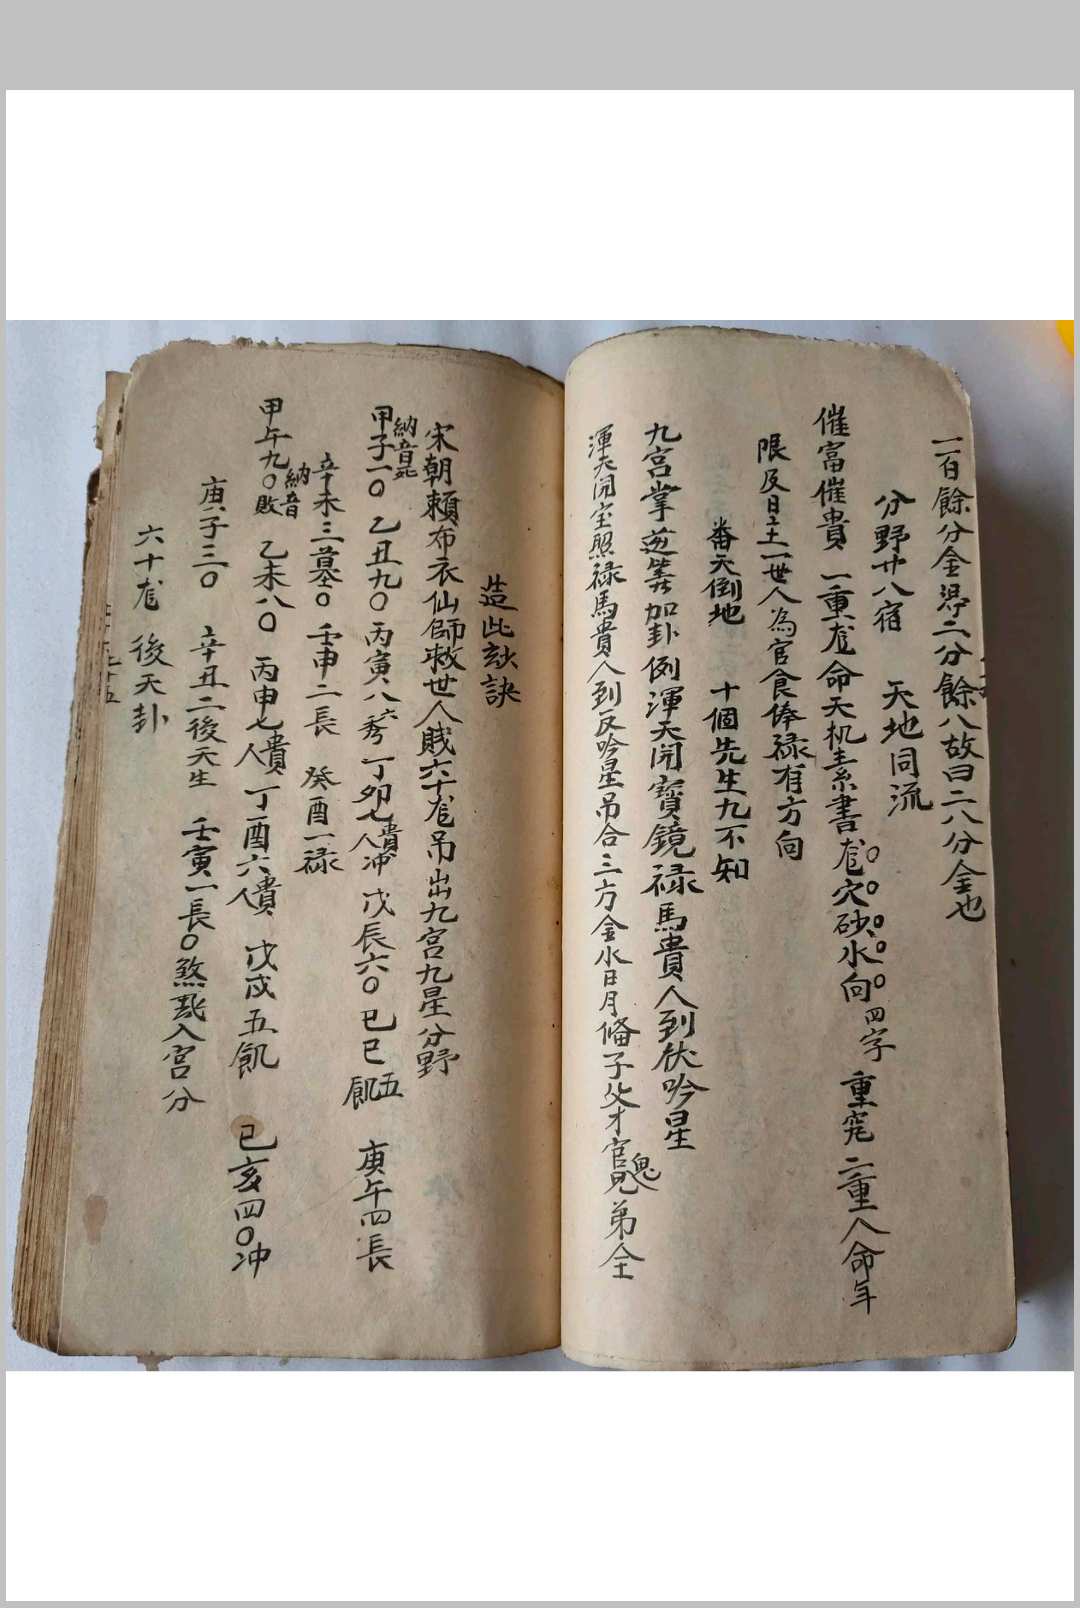 一百餘分金得二分餘八故曰二八分金也
分野廿八宿 天地同流
催富催貴 一重龙命天机素書龙○穴○砂○水○向○四字 重究 二重人命年
限及日主一世人為官食俸禄有方向
番天倒地 十個先生九不知
九宮掌逆筭加卦例渾天開寶鏡禄馬貴人到伏吟星
渾天開宝照禄馬貴人到反吟星吊合三方金水日月俻子父才官鬼兄弟全
造此刻訣
宋朝賴布衣仙師救世人賎六十龙吊出九宮九星分野
甲子一○納音死 乙丑九○丙寅八秀 丁卯七貴人冲 戊辰六○ 巳巳五飢 庚午四長
辛未三墓○ 壬申二長 癸酉一禄
甲午九○敗納音 乙未八○ 丙申七貴人 丁酉六貴人 戊戌五飢 己亥四○冲
庚子三○ 辛丑二後天生 壬寅一長○煞入宮分
六十龙 後天卦